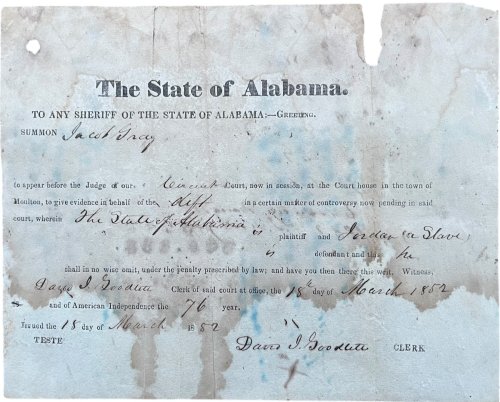 The State of Alabama.
TO ANY SHERIFF OF THE STATE OF ALABAMA:—GREETING.
SUMMON Jacob Gray
to appear before the Judge of our Circuit Court, now in session, at the Court house in the town of
Moulton, to give evidence in behalf of the deft in a certain matter of controversy now pending in said
court, wherein The State of Alabama is plaintiff and Jordan a Slave
is defendant and this he
shall in no wise omit, under the penalty prescribed by law; and have you then there this writ. Witness,
David I. Goodlett Clerk of said court at office, the 18th day of March 1852
and of American Independence the 76 year.
Issued the 18 day of March 1852
TESTE David I. Goodlett CLERK